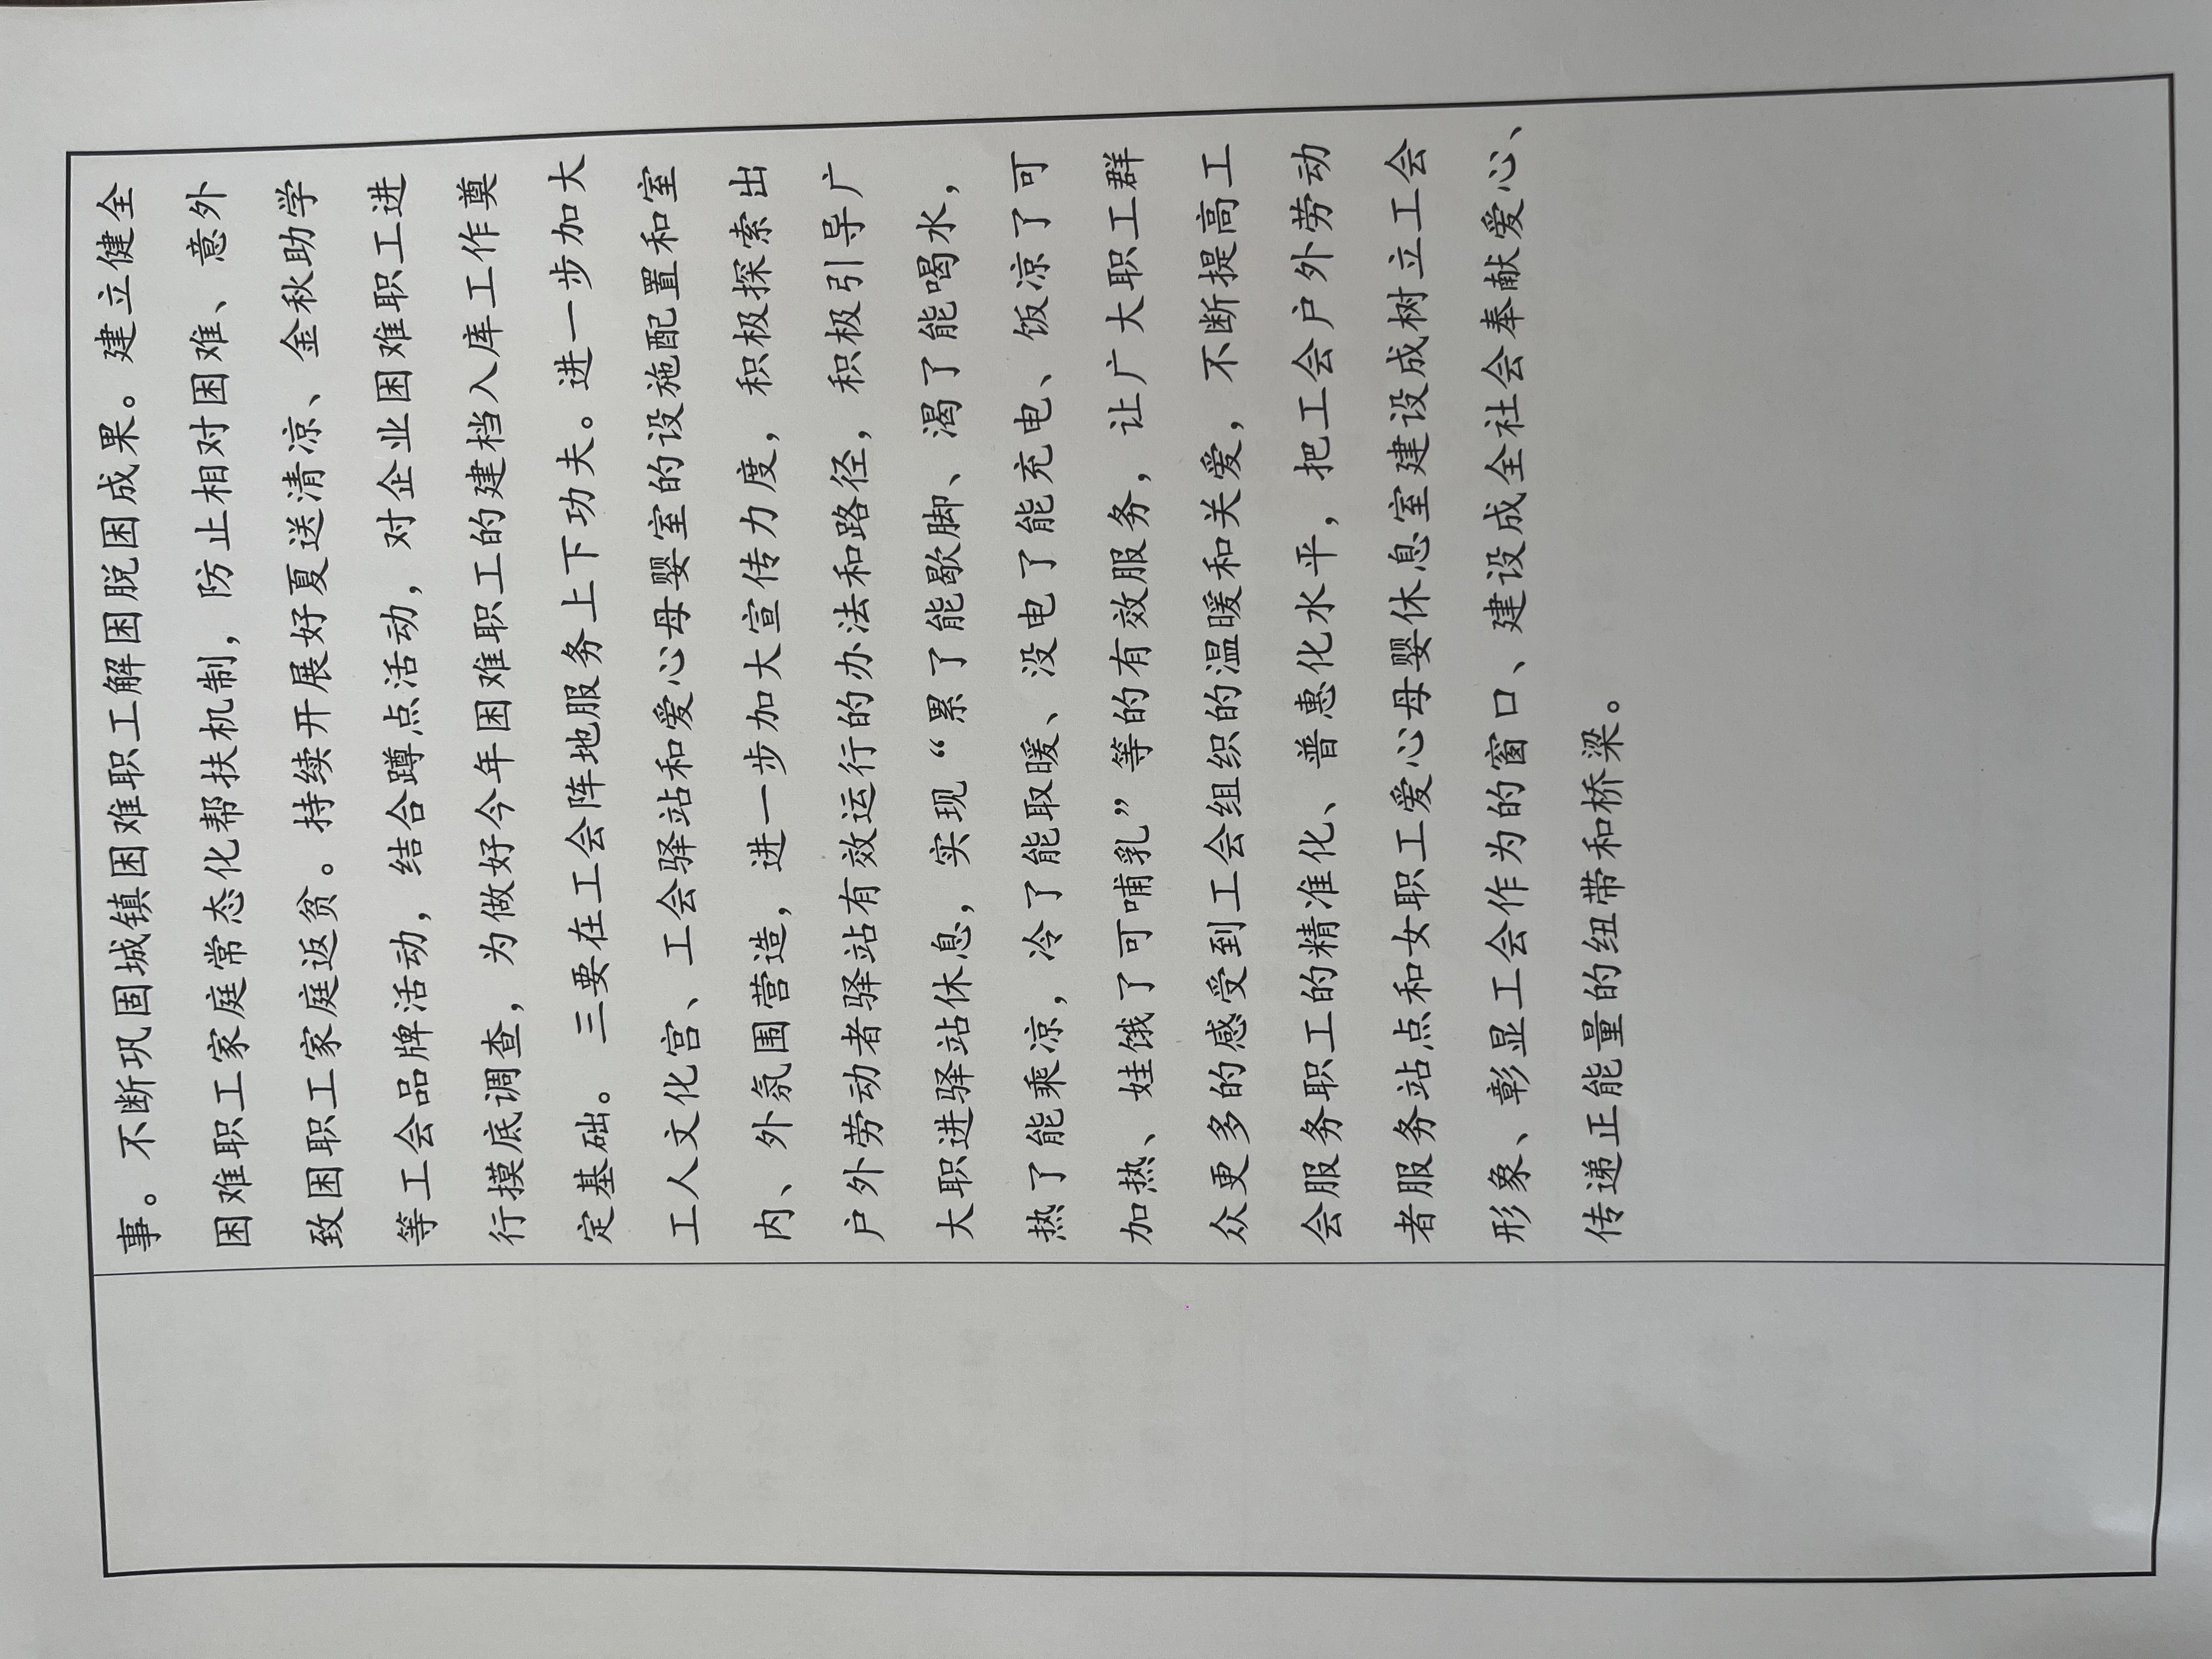 事。不断巩固城镇困难职工解困脱困成果。建立健全
困难职工家庭常态化帮扶机制，防止相对困难、意外
致困职工家庭返贫。持续开展好夏送清凉、金秋助学
等工会品牌活动，结合蹲点活动，对企业困难职工进
行摸底调查，为做好今年困难职工的建档入库工作奠
定基础。三要在工会阵地服务上下功夫。进一步加大
工人文化宫、工会驿站和爱心母婴室的设施配置和室
内、外氛围营造，进一步加大宣传力度，积极探索出
户外劳动者驿站有效运行的办法和路径，积极引导广
大职进驿站休息，实现“累了能歇脚、渴了能喝水，
热了能乘凉，冷了能取暖、没电了能充电、饭凉了可
加热、娃饿了可哺乳”等的有效服务，让广大职工群
众更多的感受到工会组织的温暖和关爱，不断提高工
会服务职工的精准化、普惠化水平，把工会户外劳动
者服务站点和女职工爱心母婴休息室建设成树立工会
形象、彰显工会作为的窗口、建设成全社会奉献爱心、
传递正能量的纽带和桥梁。